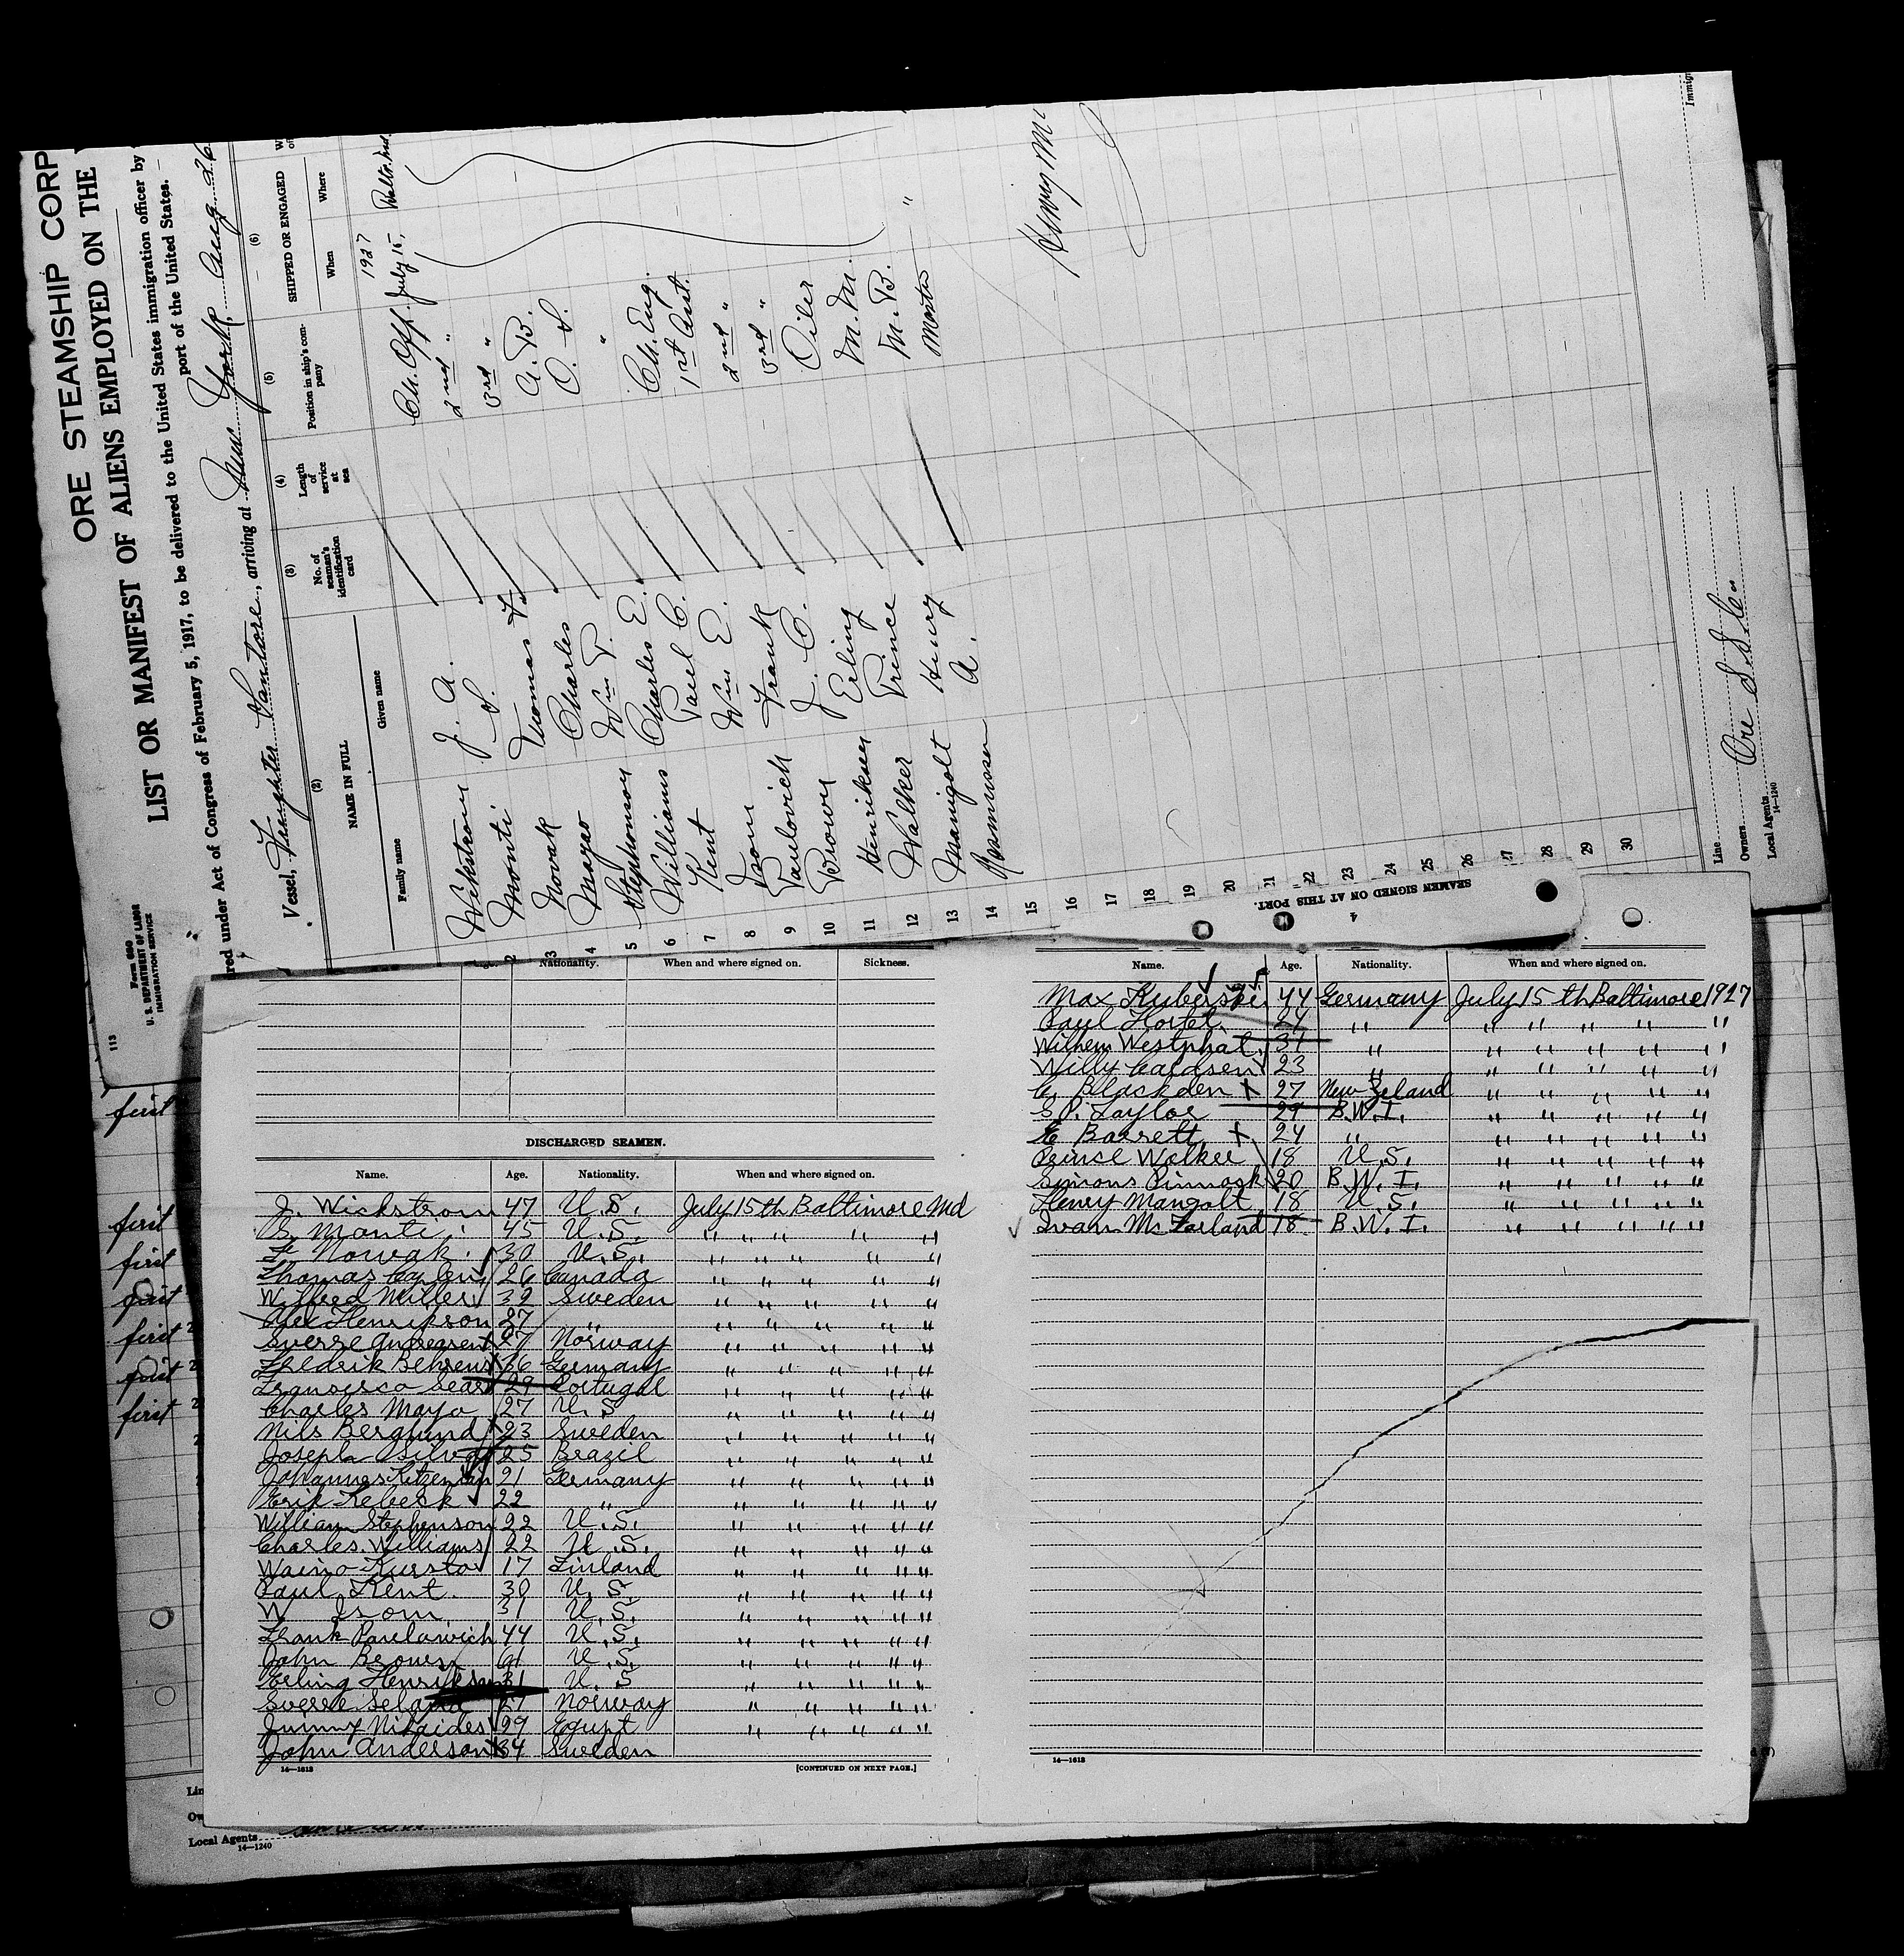 ORE STEAMSHIP CORP
LIST OR MANIFEST OF ALIENS EMPLOYED ON THE
red under Act of Congress of February 5, 1917, to be delivered to the United States immigration officer by
port of the United States.
Vessel, Freighter Santore, arriving at New York, Aug 26
113
Form 680
U. S. DEPARTMENT OF LABOR
IMMIGRATION SERVICE
(2) (3) (4) (5) (6)
NAME IN FULL No. of seaman's identification card Length of service at sea Position in ship's company SHIPPED OR ENGAGED
Family name Given name When Where
1927
Wikstrom J. A. Ch. Off. July 15, Balto. Md.
2 Monti S. 2nd "
3 Novak Thomas F. 3rd "
4 Mayao Charles A. B.
5 Stephonson Wm T. O. S.
6 Williams Charles E. "
7 Kent Paul C. Ch. Eng.
8 Isom Wm E. 1st Asst.
9 Paulovich Frank 2nd "
10 Brown J. C. 3rd "
11 Henriksen Erling Oiler
12 Walker Prince M. M.
13 Manigolt Henry M. B.
14 Rasmussen A. Master "
15
16
17
18
19
20
21
22
23
24
25
26
27
28
29
30
Henry M
Immigr
Line
Owners Ore S. S. Co.
Local Agents
14—1240
SEAMEN SIGNED ON AT THIS PORT.
4
Age. Nationality. When and where signed on. Sickness.
DISCHARGED SEAMEN.
Name. Age. Nationality. When and where signed on.
J. Wickstrom 47 U. S. July 15th Baltimore Md
S. Monti 45 U. S. " " " " "
F Nowak 30 U. S. " " " " "
Thomas Caplen 26 Canada " " " " "
Wilfred Miller 39 Sweden " " " " "
Axel Henrikson 27 " " " " " "
Sverre Andreasen 27 Norway " " " " "
Fredrik Behrens 36 Germany " " " " "
Francisco Sears 29 Portugal " " " " "
Charles Mayo 27 U. S " " " " "
Nils Berglund 23 Sweden " " " " "
Joseph Silva 25 Brazil " " " " "
Johannes 21 Germany " " " " "
Erik Rebeck 22 " " " " " "
William Stephenson 22 U. S. " " " " "
Charles Williams 22 U. S. " " " " "
Waino Kursto 17 Finland " " " " "
Paul Kent. 30 U. S. " " " " "
W Isom 31 U. S. " " " " "
Frank Paulawich 44 U. S. " " " " "
John Brown 61 U. S. " " " " "
Erling Henriksen 31 U. S " " " " "
Sverre 27 Norway " " " " "
Jimmy Nikaides 29 Egypt " " " " "
John Anderson 34 Sweden
14—1613
[CONTINUED ON NEXT PAGE.]
Name. Age. Nationality. When and where signed on.
Max Kuberski 44 Germany July 15 th Baltimore 1927
Paul Hortel 24 " " " " " "
Wilhem Westphal 31 " " " " " "
Willy Caldsen 23 " " " " " "
C. Blackden 27 New Zeland " " " " "
S P. Taylor 29 B. W. I. " " " " "
E Barrett 24 " " " " " "
Prince Walker 18 U. S. " " " " "
Simons Pinnock 20 B. W. I. " " " " "
Henry Mangolt 18 U. S. " " " " "
Ivan Mc Farland 18 B. W. I. " " " " "
14—1613
first
first
first
first
first
first
first
Lin
Ow
Local Agents
14—1240